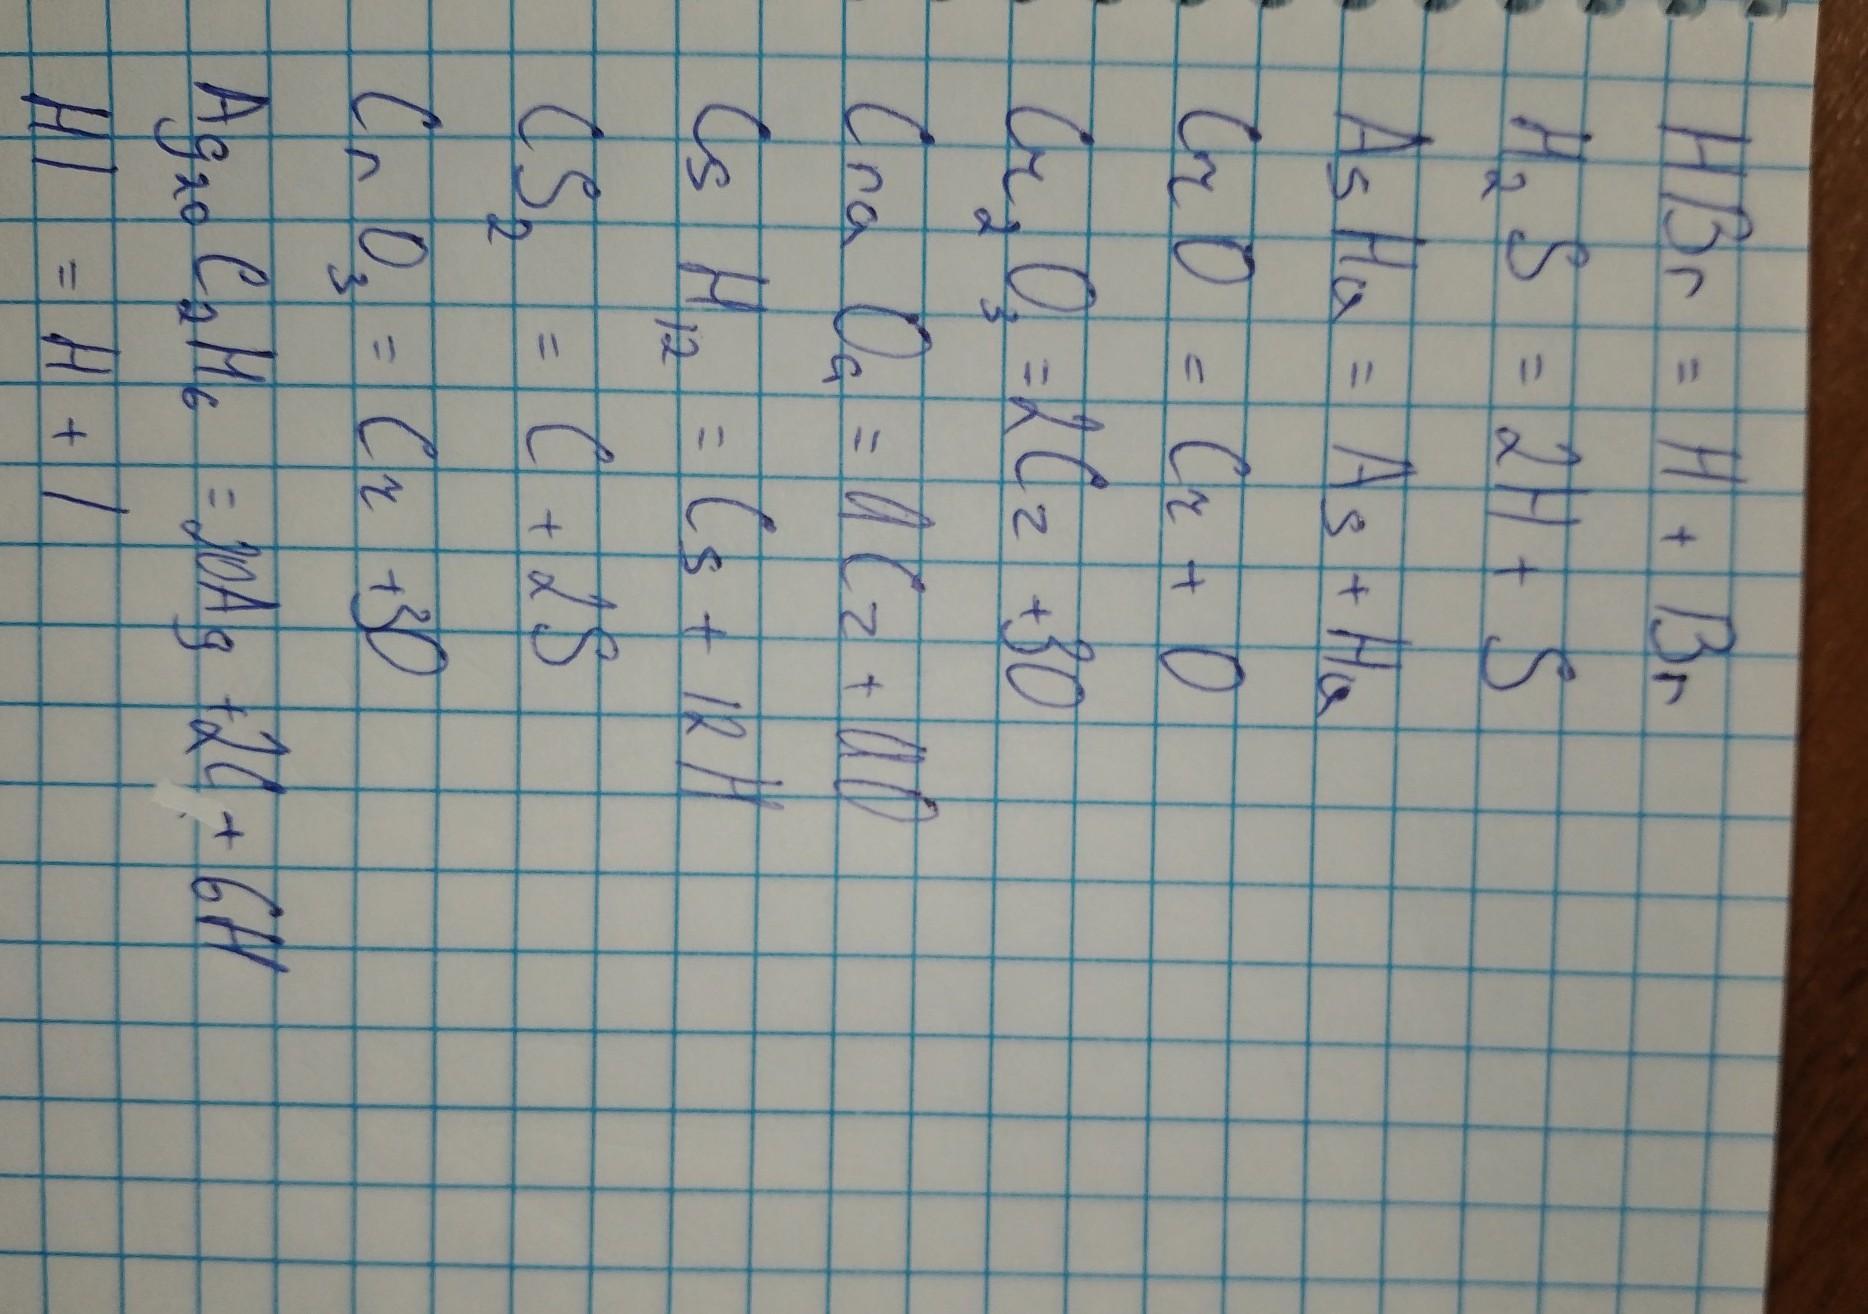 HBr = H + Br
H₂S = 2H + S
AsHa = As + Ha
CrO = Cr + O
Cr₂O₃ = 2Cr + 3O
CraO₉ = 11Cr + 11O
CsH₁₂ = Cs + 12H
CS₂ = C + 2S
CrO₃ = Cr + 3O
Ag₂₀C₂H₆ = 20Ag + 2C + 6H
HI = H + I